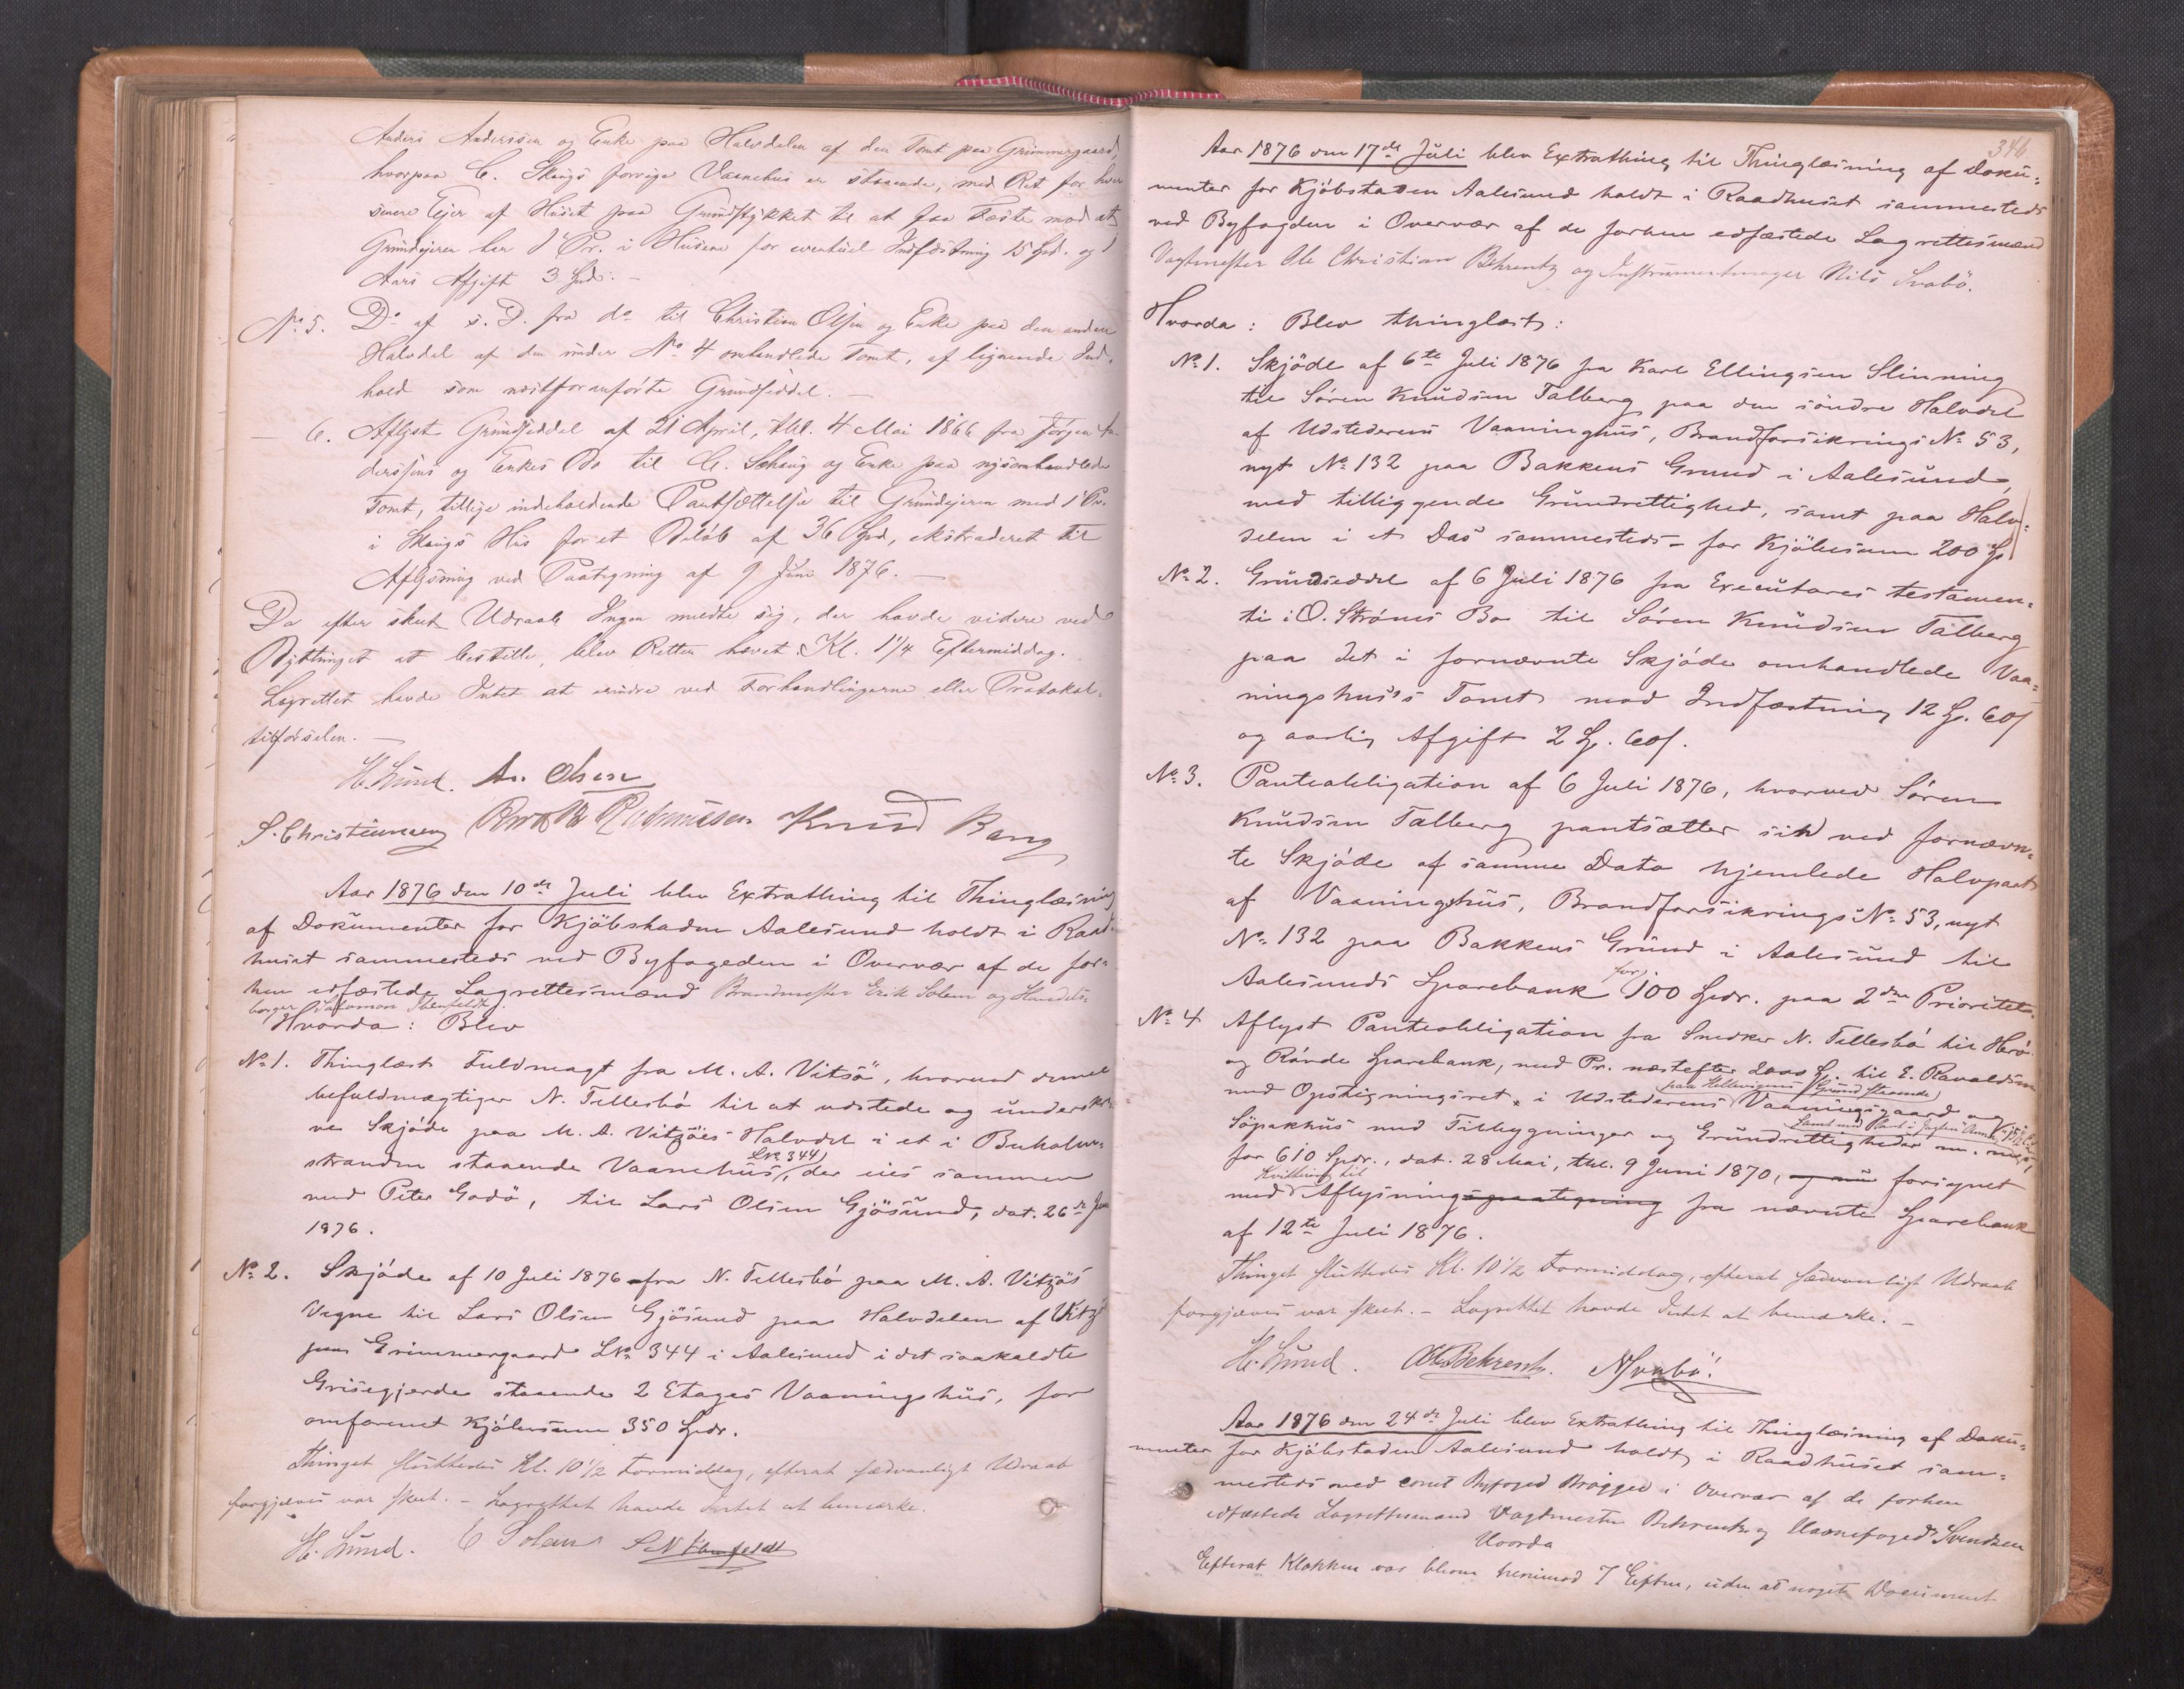 Anders Anderssen og Enke paa Halvdelen af den Tomt paa Grimmergaard,
hvorpaa C. Skougs forrige Vaanehus er staaende, med Ret for hver
senere Eier af Huset paa Grundstykket til at faa Fæste mod at
Grundejeren har 1 Pr. i Husene for eventuel Indfæstning 15 Spd. og 1
Aars Afgift 3 Spd. -
No 5. Do af s. D. fra do til Christian Olsen og Enke paa den anden
Halvdel af den under No 4 omhandlede Tomt, af lignende Ind-
hold som næstforanførte Grundseddel. -
- 6. Aflyst Grundseddel af 21 April, thl. 4 Mai 1866 fra Jørgen An-
derssens og Enkes Bo til C. Schoug og Enke paa nysomhandlede
Tomt, tillige indeholdende Pantsættelse til Grundejeren med 1 Pr.
i Skougs Hus for et Beløb af 36 Spd, ekstraderet til
Aflysning ved Paategning af 9 Juni 1876. -
Da efter skeet Udraab Ingen meldte sig, der havde videre ved
Bythinget at bestille, blev Retten hævet Kl. 1 1/4 Eftermiddag.
Lagrettet havde Intet at erindre ved Forhandlingerne eller Protokol-
tilførselen. -
H. Lund. An. Olsen
S. Christiansen Rasmussen Knud Bang
Aar 1876 den 10de Juli blev Extrathing til Thinglæsning
af Dokumenter for Kjøbstaden Aalesund holdt i Raad-
huset sammesteds ved Byfogeden i Overvær af de for-
hen edfæstede Lagrettesmænd Brandmester Erik Solem og Handels-
borger Salomon
Hvorda: Blev
No 1. Thinglæst Fuldmagt fra M. A. Vitsø, hvorved denne
befuldmægtiger N. Tellesbø til at udstede og underskri-
ve Skjøde paa M. A. Vitzøes Halvdel i et i Buholm-
stranden staaende Vaanehus (LNo 344), der eies sammen
med Peter Godø, til Lars Olsen Gjøsund, dat. 26de Juni
1876.
No 2. Skjøde af 10 Juli 1876 fra N. Tellesbø paa M. A. Vitzøs
Vegne til Lars Olsen Gjøsund paa Halvdelen af Vitzø
paa Grimmergaard LNo 344 i Aalesund i det saakaldte
Grisegjerde staaende 2 Etages Vaaningshus, for
omforenet Kjøbesum 350 Spdr.
Thinget sluttedes Kl. 10 1/2 Formiddag, efterat sædvanligt Udraab
forgjæves var skeet. - Lagrettet havde Intet at bemærke.
H. Lund. E Solem
346
Aar 1876 den 17de Juli blev Extrathing til Thinglæsning af Doku-
menter for Kjøbstaden Aalesund holdt i Raadhuset sammesteds
ved Byfogden i Overvær af de forhen edfæstede Lagrettesmænd
Vagtmester Ole Christian Behrentz og Instrumentmager Nils Svabø.
Hvorda: Blev thinglæst:
No 1. Skjøde af 6te Juli 1876 fra Karl Ellingsen Slinning
til Søren Knudsen Talberg paa den søndre Halvdel
af Udstederens Vaaninghus, Brandforsikrings No 53,
nyt No 132 paa Bakkens Grund i Aalesund,
med tilliggende Grundrettighed, samt paa Halv-
delen i et Das sammesteds - for Kjøbesum 200 Sp
No 2. Grundseddel af 6 Juli 1876 fra Executores testamen-
ti i O. Strøms Bo til Søren Knudsen Talberg
paa det i fornævnte Skjøde omhandlede Vaa-
ningshus's Tomt mod Indfæstning 12 Sp. 60 s
og aarlig Afgift 2 Sp. 60 s.
No 3. Panteobligation af 6 Juli 1876, hvorved Søren
Knudsen Talberg pantsætter sin ved fornævn-
te Skjøde af samme Dato hjemlede Halvpart
af Vaaningshus, Brandforsikrings No 53, nyt
No 132 paa Bakkens Grund i Aalesund til
Aalesunds Sparebank for 100 Spdr. paa 2den Prioritet.
No 4 Aflyst Panteobligation fra Snedker N. Tellesbø til Herø
og Røvde Sparebank, med Pr. næstefter 2000 Sp. til E. Ravaldsen
med Opstigningsret, i Udstederens paa Hellevigens Grund staaende Vaaningsgaard og
Søpakhus med Tilbygninger og Grundrettigheder m. m.
for 610 Spdr., dat. 28 Mai, thl. 9 Juni 1870, og nu forsynet
med Kvittering til Aflysningspaategning fra nævnte Sparebank
af 12te Juli 1876.
Thinget sluttedes Kl. 10 1/2 Formiddag, efterat sædvanligt Udraab
forgjæves var skeet. - Lagrettet havde Intet at bemærke. -
H. Lund. Behrentz. NSvabø.
Aar 1876 den 24de Juli blev Extrathing til Thinglæsning af Doku-
menter for Kjøbstaden Aalesund holdt i Raadhuset sam-
mesteds ved const Byfoged Brøgger i Overvær af de forhen
edfæstede Lagrettesmænd Vagtmester Behrentz og Havnefoged Svendsen
Hvorda
Efterat Klokken var bleven henimod 7 Efterm, uden at noget Document